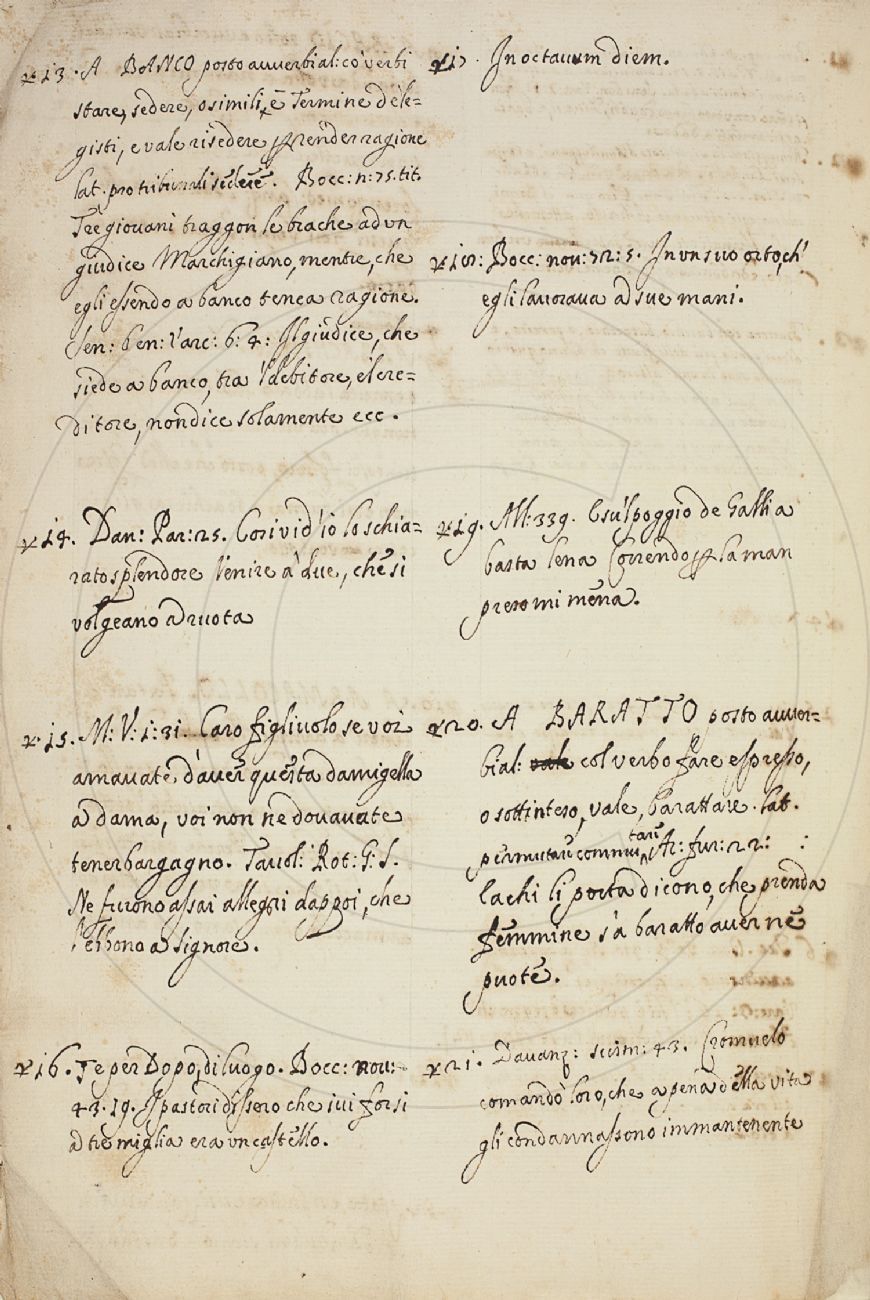 13. A BANCO posto avverbial: cò verbi
stare, sedere, o simili, è Termine dè le=
gisti, e vale risedere p render ragione
lat. pro tribunali sedere. Bocc: n: 75. tit.
Tre giovani traggon le brache ad vn
giudice Marchigiano, mentre, che
egli essendo a banco tenea ragione.
Sen: ben: Varc: 6: 4: Il giudice, che
siede a banco, tra 'l debitore, e 'l cre=
ditore, non dice solamente ecc.
14. Dan: Par: 25. Cosi vid' io lo schia=
rato splendore Venire a' due, che si
volgeano ad ruota
15. M: V: 1: 31. Caro figliuolo se voi
amauate d'auer questa damigella
a dama, voi non ne douauate
tener bargagno. Tauol: Rot: G: S.
Ne furono assai allegri dappoi, che
l'ebbono a signore.
16. Te per Dopo, di luogo. Bocc: nou:
43. 19. I pastori dissero che iui forsi
a tre miglia era vn castello.
17. In octauum diem.
18: Bocc: nou: 72: 5. In vn suo orto, ch'
egli lauoraua ad sue mani.
19. All: 339. E su 'l poggio de Gallia
basta lena Correndo p la man
preso mi mena.
20. A BARATTO posto auuer=
bial: col verbo fare espresso,
o sottinteso, vale, barattare. lat.
permutare commutare, Ar: fur: 22:
la chi li porta dicono, che prenda
femmine s'a baratto auer ne
puote.
21. Dauanz: scism: 43. Cromuelo
comandò loro, che a pena della vita
gli condannassono immantenente